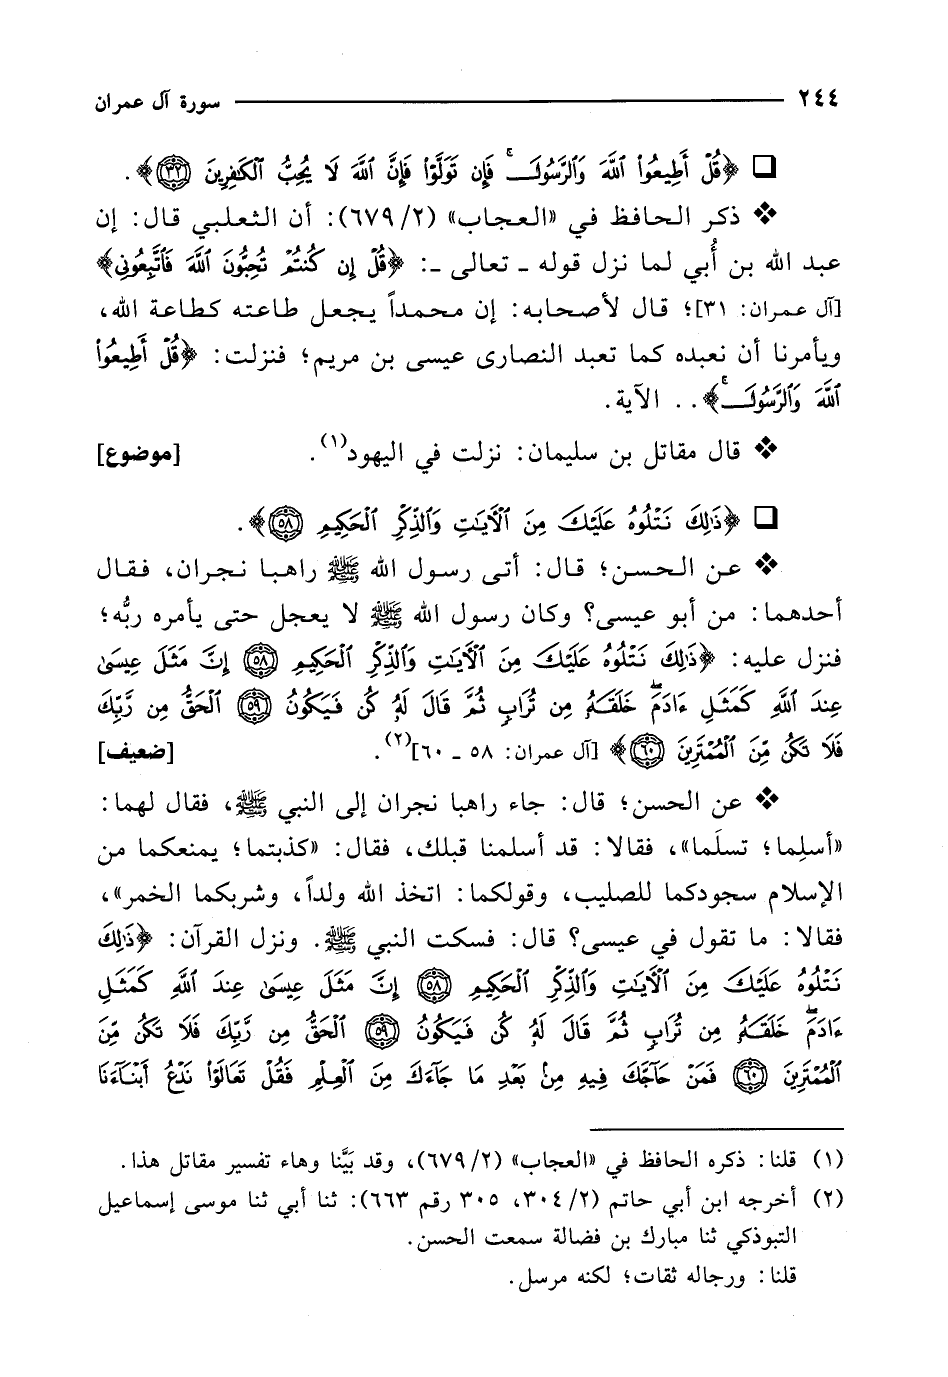 ٢٤٤ سورة آل عمران
❑ ﴿قُلْ أَطِيعُوا۟ ٱللَّهَ وَٱلرَّسُولَۖ فَإِن تَوَلَّوْا۟ فَإِنَّ ٱللَّهَ لَا يُحِبُّ ٱلْكَـٰفِرِينَ ﴿٣٢﴾﴾.
❖ ذكر الحافظ في «العجاب» (٢/ ٦٧٩): أن الثعلبي قال: إن
عبد الله بن أُبي لما نزل قوله ـ تعالى ـ: ﴿قُلْ إِن كُنتُمْ تُحِبُّونَ ٱللَّهَ فَٱتَّبِعُونِى﴾
[آل عمران: ٣١]؛ قال لأصحابه: إن محمداً يجعل طاعته كطاعة الله،
ويأمرنا أن نعبده كما تعبد النصارى عيسى بن مريم؛ فنزلت: ﴿قُلْ أَطِيعُوا۟
ٱللَّهَ وَٱلرَّسُولَۖ﴾.. الآية.
❖ قال مقاتل بن سليمان: نزلت في اليهود(١). [موضوع]
❑ ﴿ذَٰلِكَ نَتْلُوهُ عَلَيْكَ مِنَ ٱلْـَٔايَـٰتِ وَٱلذِّكْرِ ٱلْحَكِيمِ ﴿٥٨﴾﴾.
❖ عن الحسن؛ قال: أتى رسول الله ﷺ راهبا نجران، فقال
أحدهما: من أبو عيسى؟ وكان رسول الله ﷺ لا يعجل حتى يأمره ربُّه؛
فنزل عليه: ﴿ذَٰلِكَ نَتْلُوهُ عَلَيْكَ مِنَ ٱلْـَٔايَـٰتِ وَٱلذِّكْرِ ٱلْحَكِيمِ ﴿٥٨﴾ إِنَّ مَثَلَ عِيسَىٰ
عِندَ ٱللَّهِ كَمَثَلِ ءَادَمَۖ خَلَقَهُۥ مِن تُرَابٍ ثُمَّ قَالَ لَهُۥ كُن فَيَكُونُ ﴿٥٩﴾ ٱلْحَقُّ مِن رَّبِّكَ
فَلَا تَكُن مِّنَ ٱلْمُمْتَرِينَ ﴿٦٠﴾﴾ [آل عمران: ٥٨ ـ ٦٠](٢). [ضعيف]
❖ عن الحسن؛ قال: جاء راهبا نجران إلى النبي ﷺ، فقال لهما:
«أسلِما؛ تسلَما»، فقالا: قد أسلمنا قبلك، فقال: «كذبتما؛ يمنعكما من
الإسلام سجودكما للصليب، وقولكما: اتخذ الله ولداً، وشربكما الخمر»،
فقالا: ما تقول في عيسى؟ قال: فسكت النبي ﷺ. ونزل القرآن: ﴿ذَٰلِكَ
نَتْلُوهُ عَلَيْكَ مِنَ ٱلْـَٔايَـٰتِ وَٱلذِّكْرِ ٱلْحَكِيمِ ﴿٥٨﴾ إِنَّ مَثَلَ عِيسَىٰ عِندَ ٱللَّهِ كَمَثَلِ
ءَادَمَۖ خَلَقَهُۥ مِن تُرَابٍ ثُمَّ قَالَ لَهُۥ كُن فَيَكُونُ ﴿٥٩﴾ ٱلْحَقُّ مِن رَّبِّكَ فَلَا تَكُن مِّنَ
ٱلْمُمْتَرِينَ ﴿٦٠﴾ فَمَنْ حَآجَّكَ فِيهِ مِنۢ بَعْدِ مَا جَآءَكَ مِنَ ٱلْعِلْمِ فَقُلْ تَعَالَوْا۟ نَدْعُ أَبْنَآءَنَا
(١) قلنا: ذكره الحافظ في «العجاب» (٢/ ٦٧٩)، وقد بَيَّنا وهاء تفسير مقاتل هذا.
(٢) أخرجه ابن أبي حاتم (٢/ ٣٠٤، ٣٠٥ رقم ٦٦٣): ثنا أبي ثنا موسى إسماعيل
التبوذكي ثنا مبارك بن فضالة سمعت الحسن.
قلنا: ورجاله ثقات؛ لكنه مرسل.